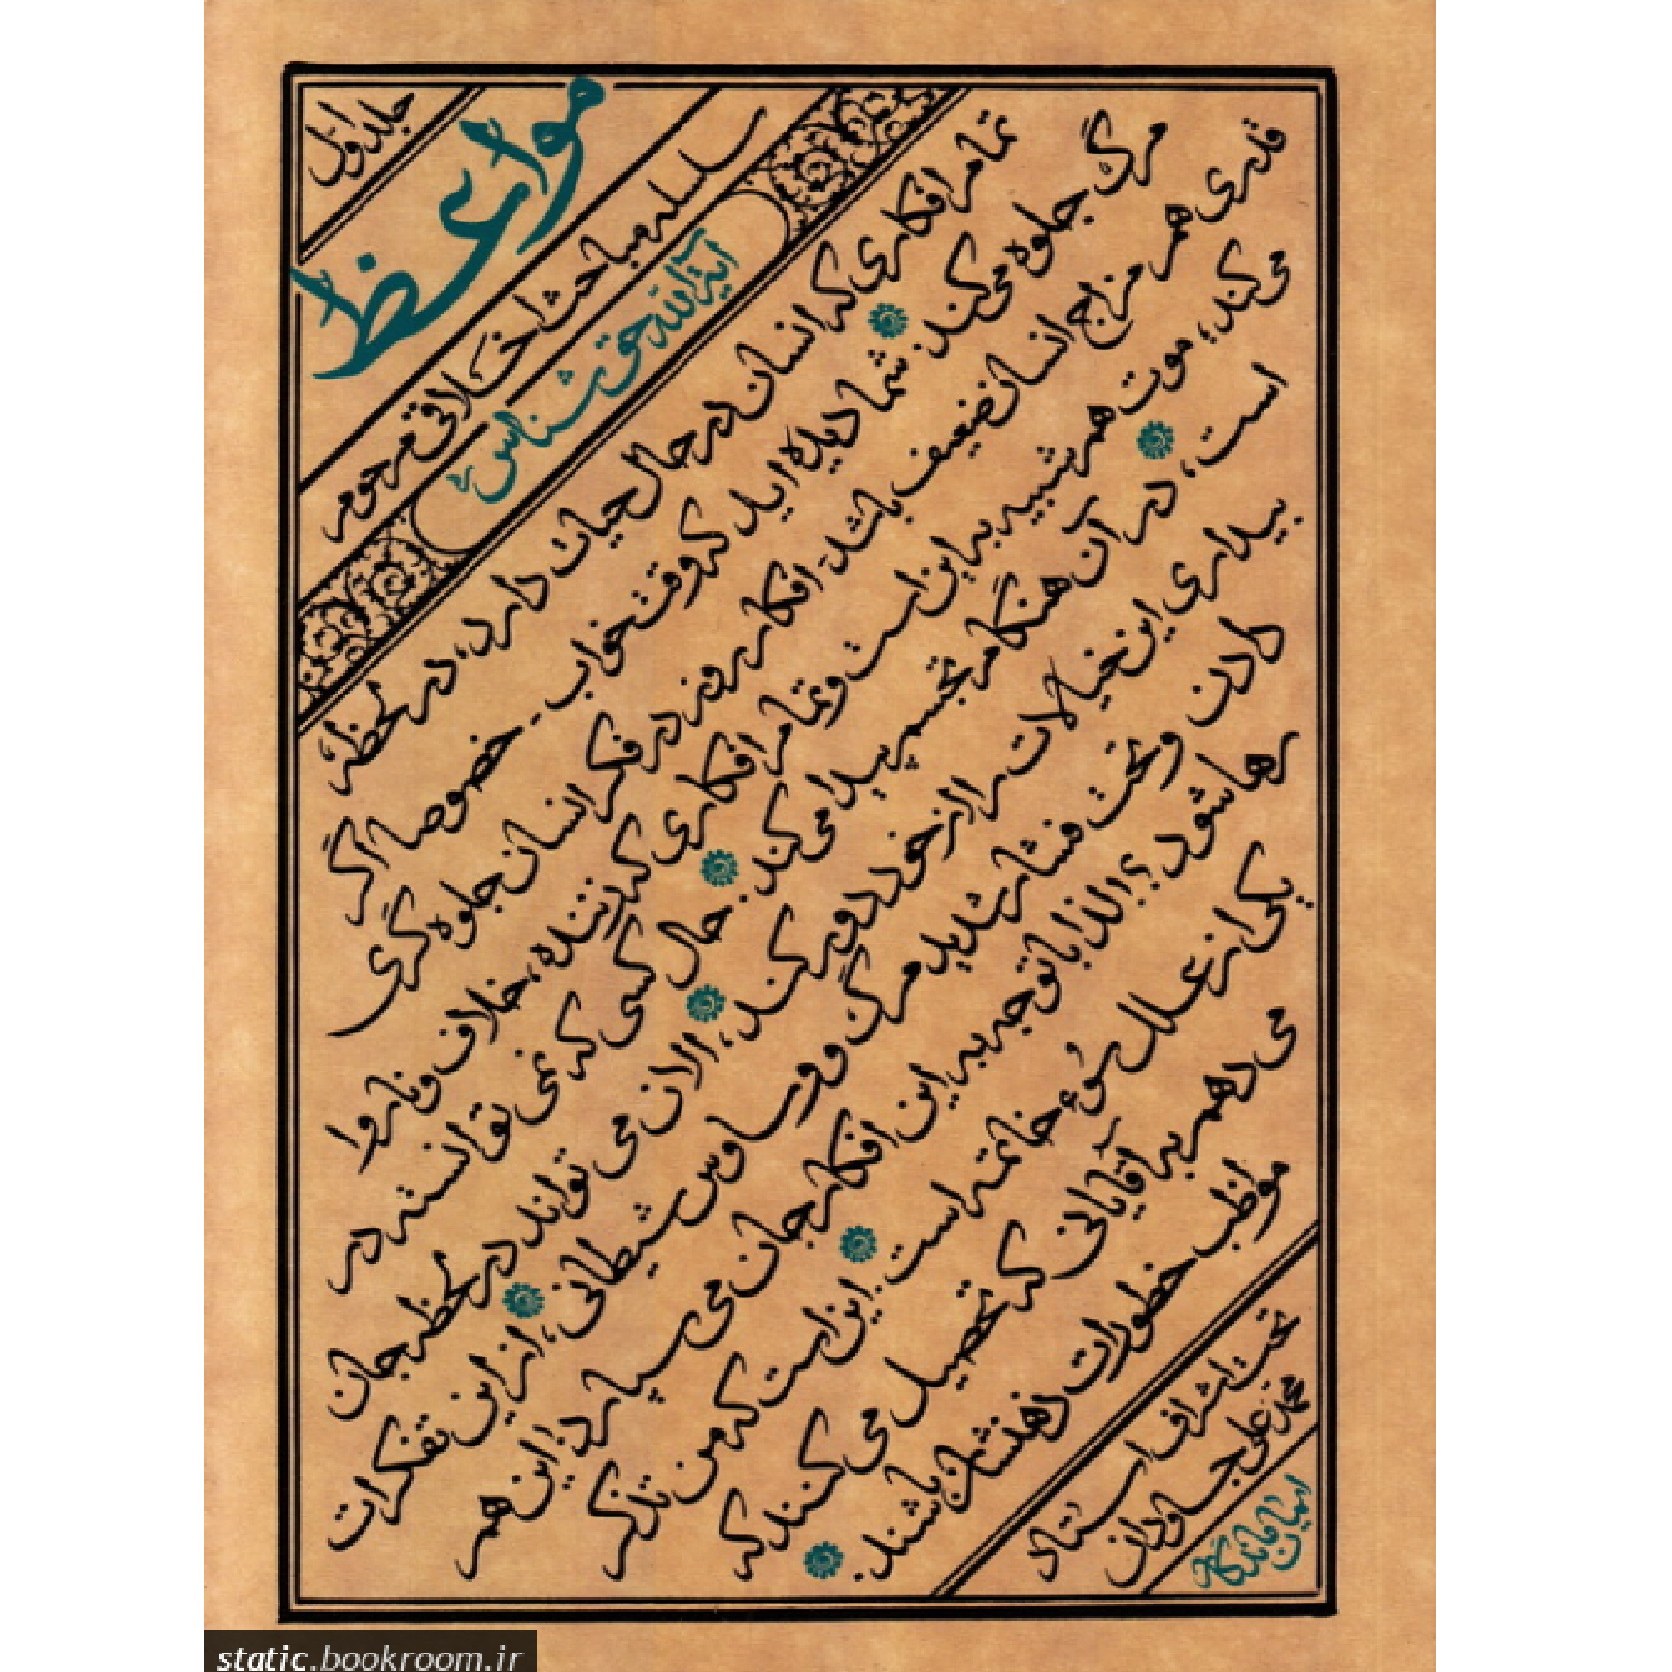 جلد اول
مواعظ
سلسله مباحث اخلاقی مرحوم
آیة الله حق شناس
تمام افکاری که انسان در حال حیات دارد، در لحظهٔ
مرگ جلوه می کند. شما دیده اید که وقت خواب - خصوصا اگر
قدری هم مزاج انسان ضعیف باشد - افکار روز در فکر انسان جلوه گری
می کند، موت هم شبیه به این است و تمام افکاری که نشده، خلاف و ناروا
است، در آن هنگام تجسم پیدا می کند. حال کسی که نمی توانسته در
بیداری این خیالات را از خود دور کند، الان می تواند در لحظه جان
دادن و تحت فشار شدید مرگ و وساوس شیطانی، از این تفکرات
رها شود؟! لذا با توجه به این افکار جان می سپارد! این هم
یکی از علل سوء خاتمه است. این است که من تذکر
می دهم به آقایانی که تحصیل می کنند که
مواظب خطورات ذهنشان باشند.
تحت اشراف استاد
محمدعلی جاودان
ایمان ماندگار
static.bookroom.ir